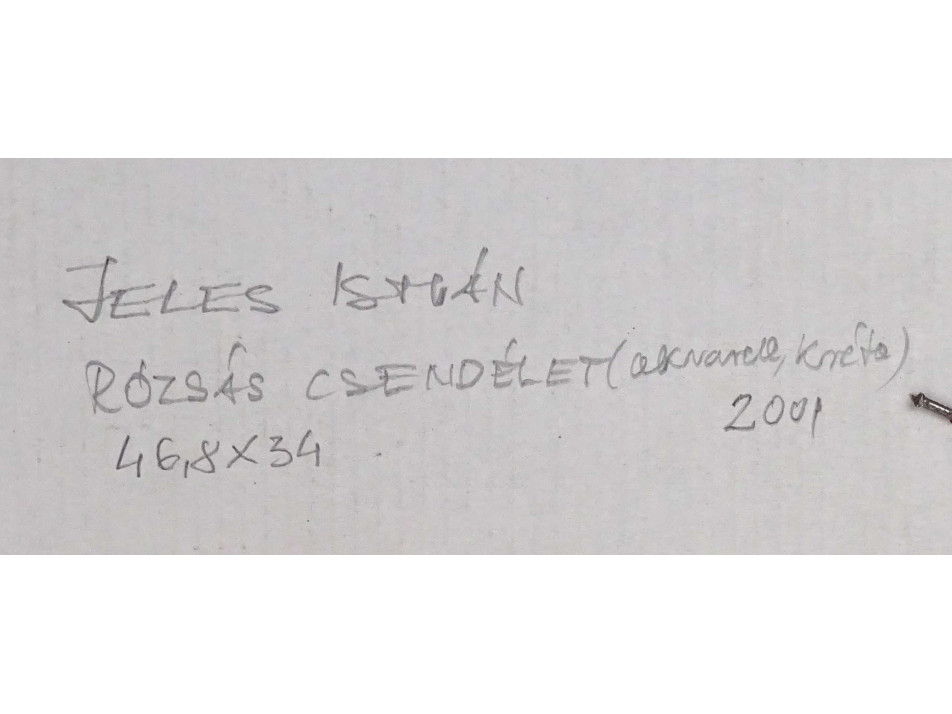 JELES ISTVÁN
RÓZSÁS CSENDÉLET (akvarell, kréta)
2001
46,8X34